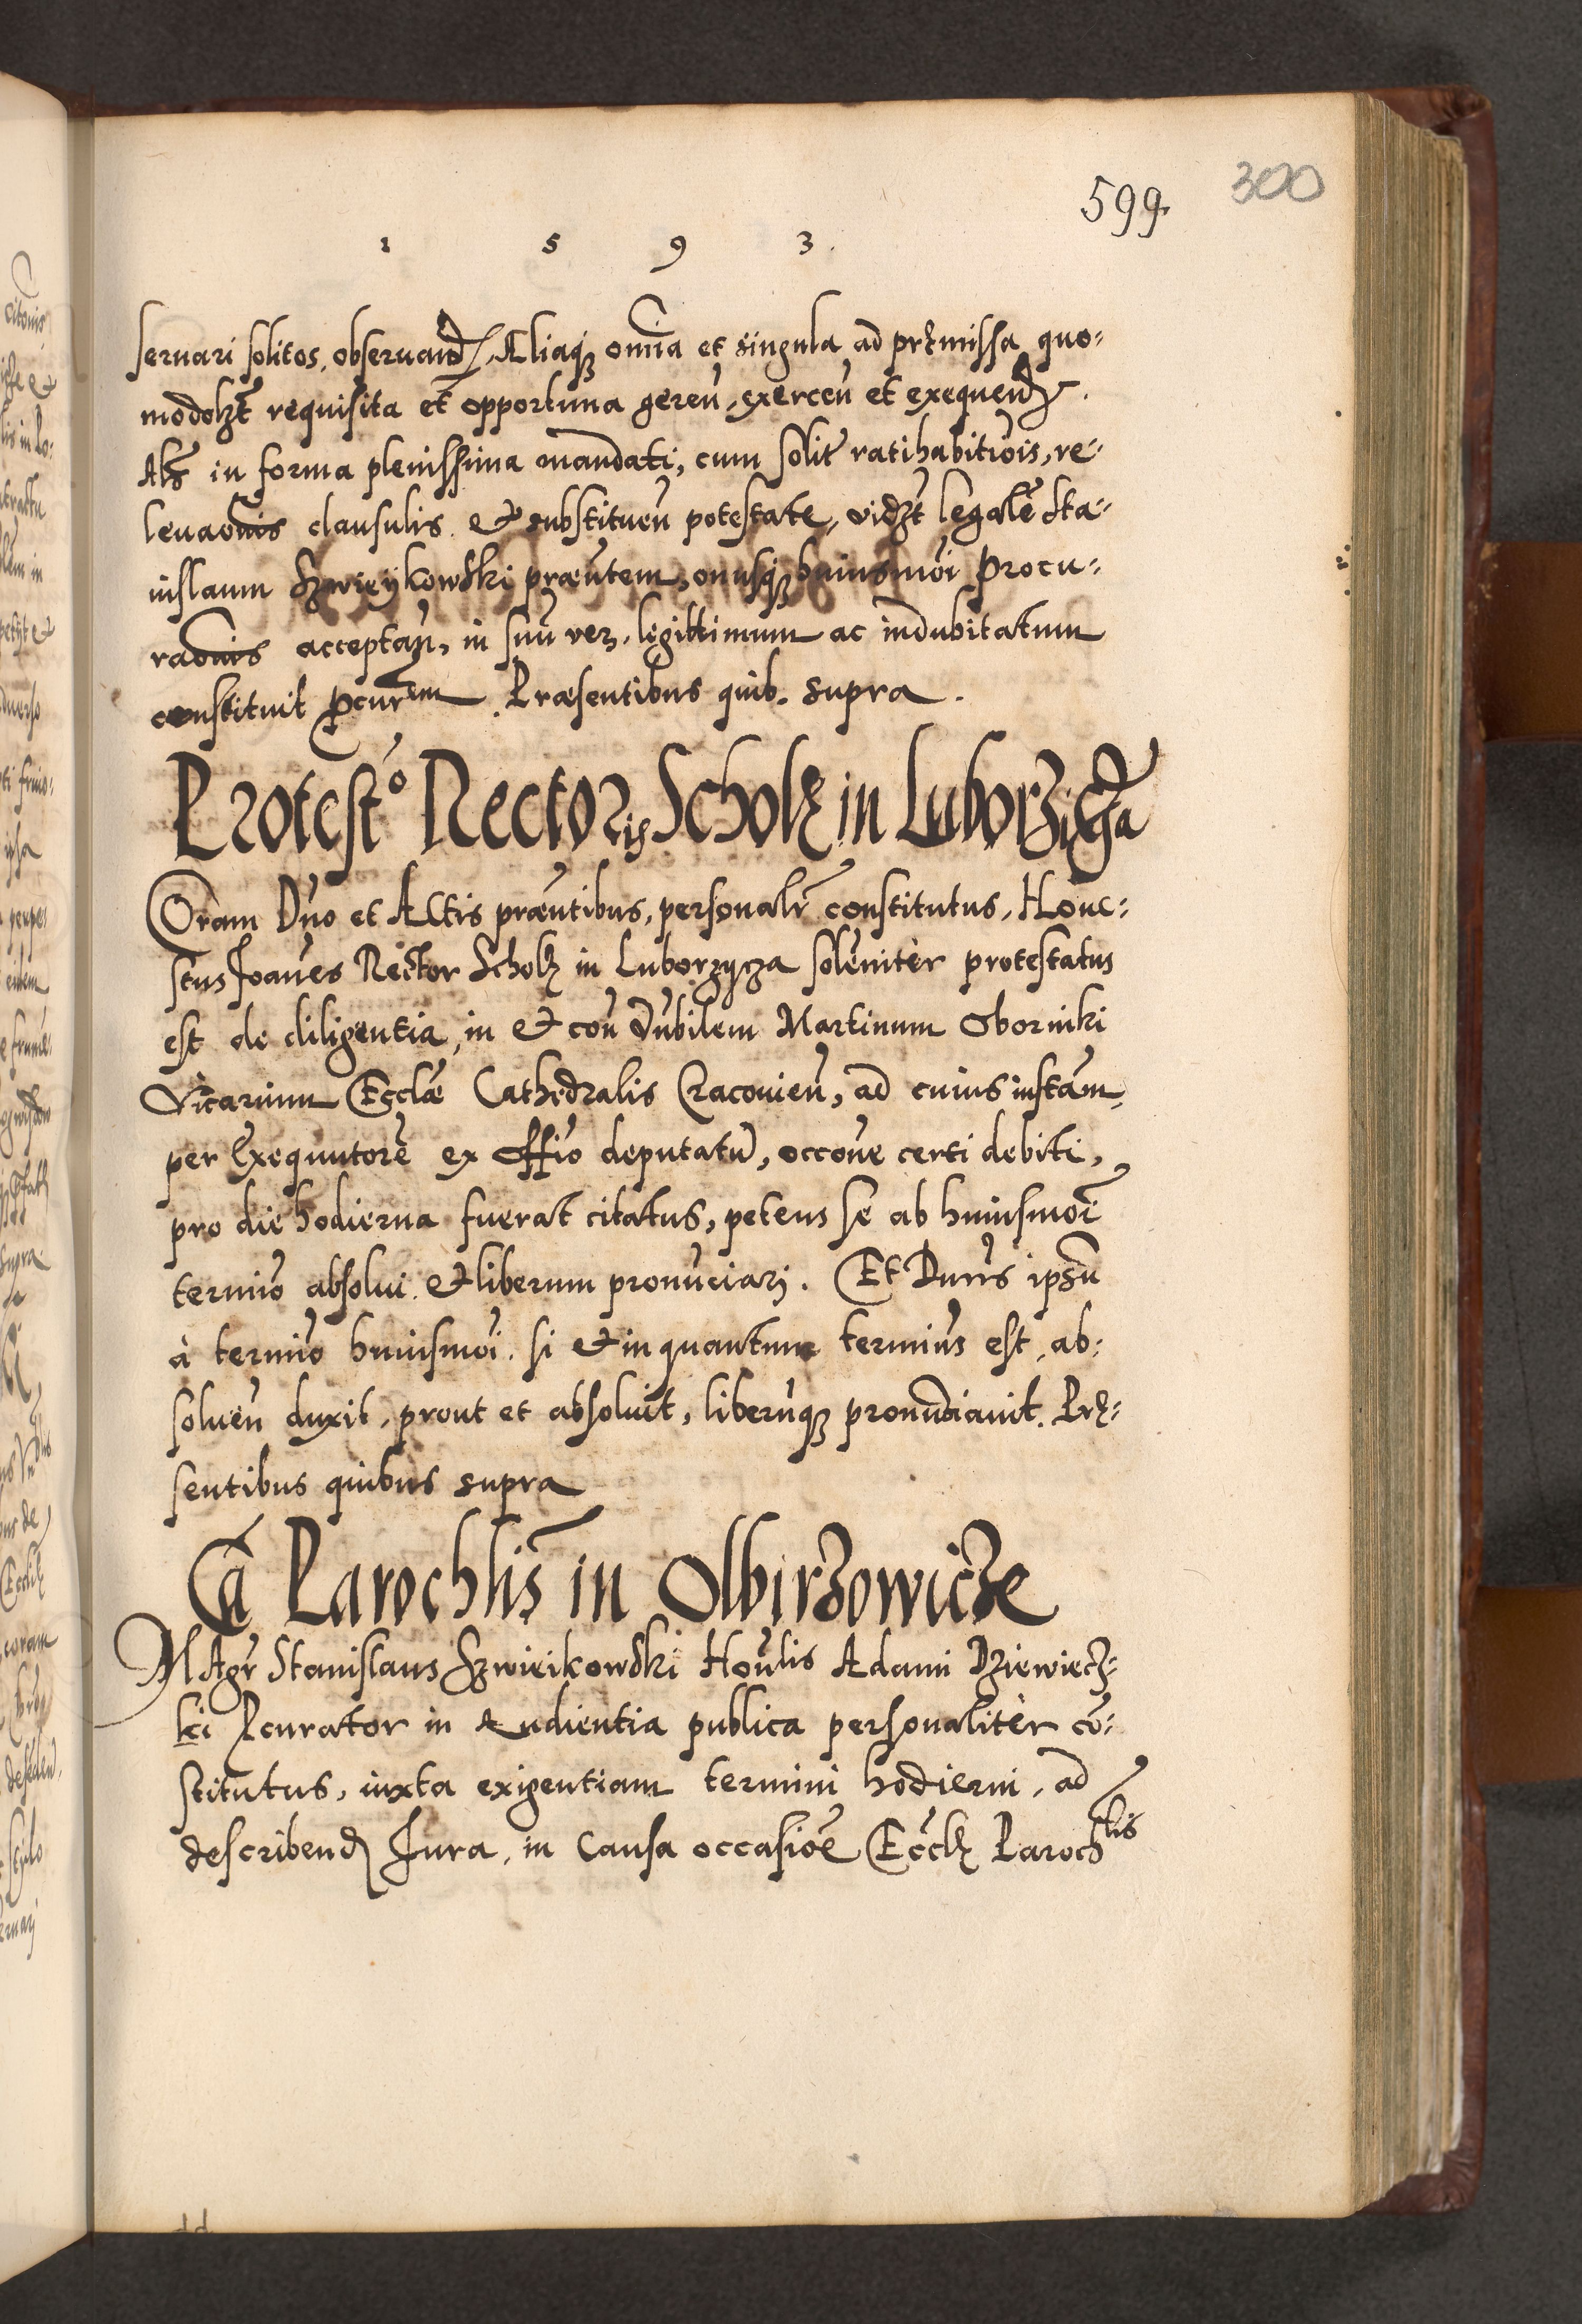 300
599
1 5 9 3.
seruari solitos, obseruand, Aliaq; om̃ia et singula ad pręmissa quo-
modolƷt requisita et opportuna gereñ, exerceñ et exequend.
Alʒ in forma plenissima mandati, cum solit ratihabitiõis, re-
leuaõnis clausulis. et substitueñ potestate, vidʒt legalẽ Sta-
nislaum Szwieykowski praeñtem, onusq; huiusmõi Procu-
raõnis acceptañ, in suũ verũ, legittimum ac indubitatum
constituit Pcur̃em. Praesentibus quib. supra.
Protestõ Rectoris Scholę in Luborzicza
Coram Dño et Actis praeñtibus, personalr̃ constitutus, Hone-
stus Joañes Rector Scholę in Luborzycza solẽniter protestatus
est de diligentia, in et con Dñbilem Martinum Oborniki
Vicarium Ecclæ Cathedralis Cracouieñ, ad cuius instam,
per Exequutorẽ ex offio deputatũ, occõne certi debiti,
pro die hodierna fuerat citatus, petens se ab huiusmõi
termĩo absolui. et liberum pronũciari. Et Dnũs ipsũ
à termĩo huiusmõi. si et in quantum termĩus est, ab-
solueñ duxit, prout et absoluit, liberũq; pronũciauit. Prę-
sentibus quibus supra
Cã Parochlis in Olbirzowicze
Magr̃ Stanislaus Szwieikowski Hoñlis Adami Dziewiecz-
ki Pcurator in Audientia publica personaliter cõ-
stitutus, iuxta exigentiam termini hodierni, ad
describend Jura, in Causa occasiõe Ecclę Parochlis